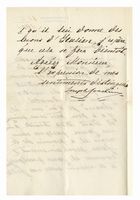 qu'il lui donne des
leçons d'Italien. J'espère
que cela se fera bientôt.
Agréez Monsieur
l'expression de mes
sentiments distingués